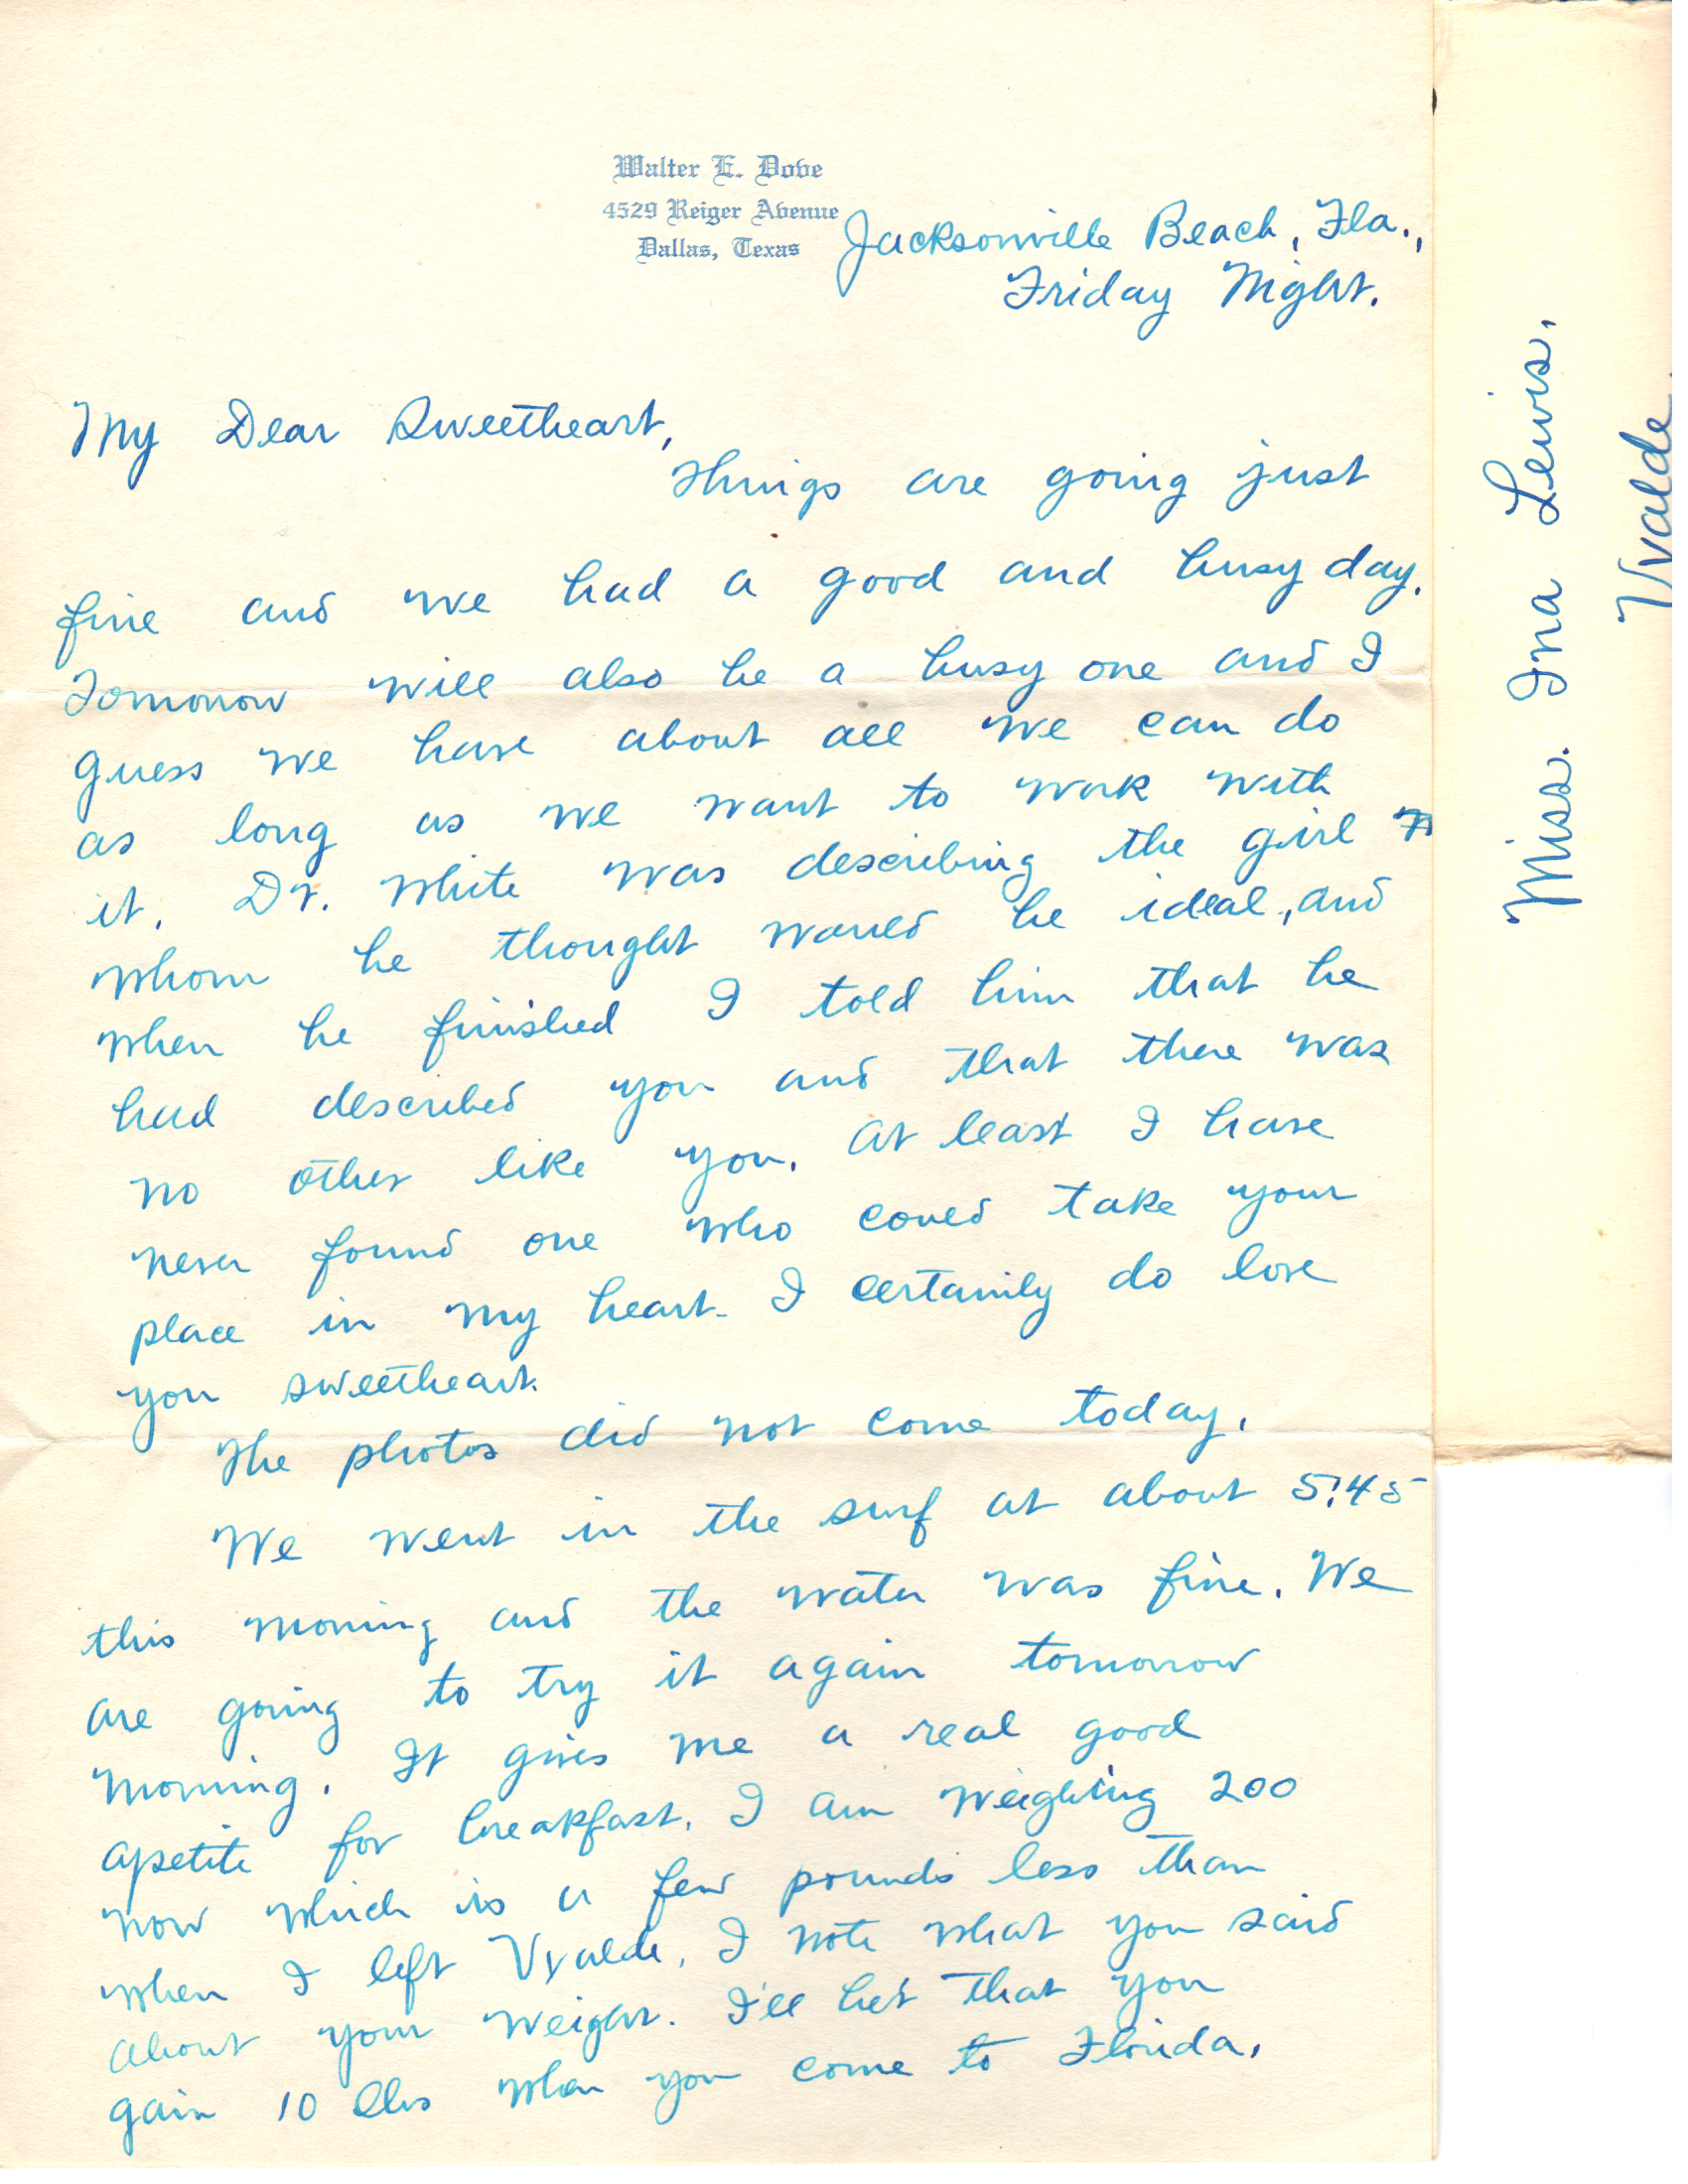 Walter E. Dove
4529 Reiger Avenue
Dallas, Texas
Jacksonville Beach, Fla.,
Friday Night.
My Dear Sweetheart,
Things are going just
fine and we had a good and busy day.
Tomorrow will also be a busy one and I
guess we have about all we can do
as long as we want to work with
it. Dr. White was describing the girl
whom he thought would be ideal, and
when he finished I told him that he
had described you and that there was
no other like you. At least I have
never found one who could take your
place in my heart. I certainly do love
you sweetheart.
The photos did not come today.
We went in the surf at about 5:45
this morning and the water was fine. We
are going to try it again tomorrow
morning. It gives me a real good
apetite for breakfast. I am weighing 200
now which is a few pounds less than
when I left Uvalde. I note what you said
about your weight. I'll bet that you
gain 10 lbs when you come to Florida.
Miss. Ina Lewis.
Uvalde